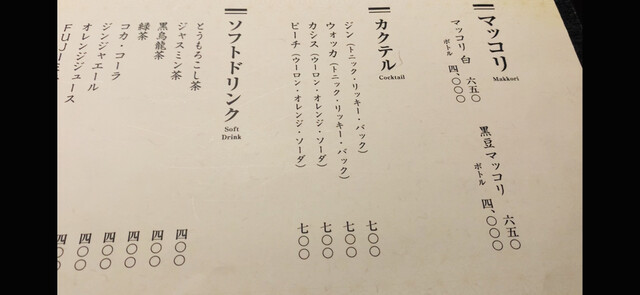 マッコリ
Makkori
マッコリ 白 六五〇
ボトル 四、〇〇〇
黒豆マッコリ 六五〇
ボトル 四、〇〇〇
カクテル
Cocktail
ジン(トニック・リッキー・バック) 七〇〇
ウォッカ(トニック・リッキー・バック) 七〇〇
カシス(ウーロン・オレンジ・ソーダ) 七〇〇
ピーチ(ウーロン・オレンジ・ソーダ) 七〇〇
ソフトドリンク
Soft
Drink
とうもろこし茶 四〇〇
ジャスミン茶 四〇〇
黒烏龍茶 四〇〇
緑茶 四〇〇
コカ・コーラ 四〇〇
ジンジャエール 四〇〇
オレンジジュース
FUJI